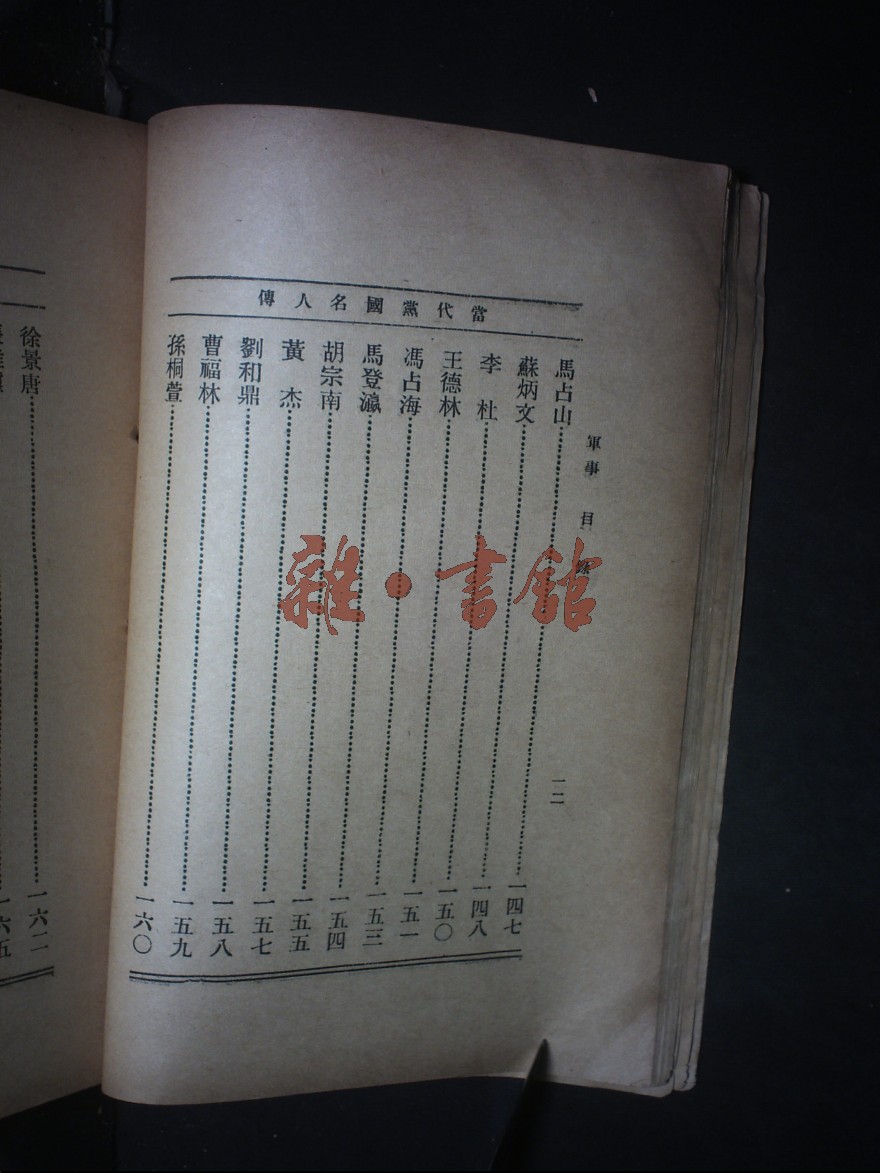 軍事 目錄 一二
當代黨國名人傳
馬占山 一四七
蘇炳文 一四八
李杜 一五〇
王德林 一五一
馮占海 一五三
馬登瀛 一五四
胡宗南 一五五
黃杰 一五七
劉和鼎 一五八
曹福林 一五九
孫桐萱 一六〇
徐景唐 一六二
雜·書館